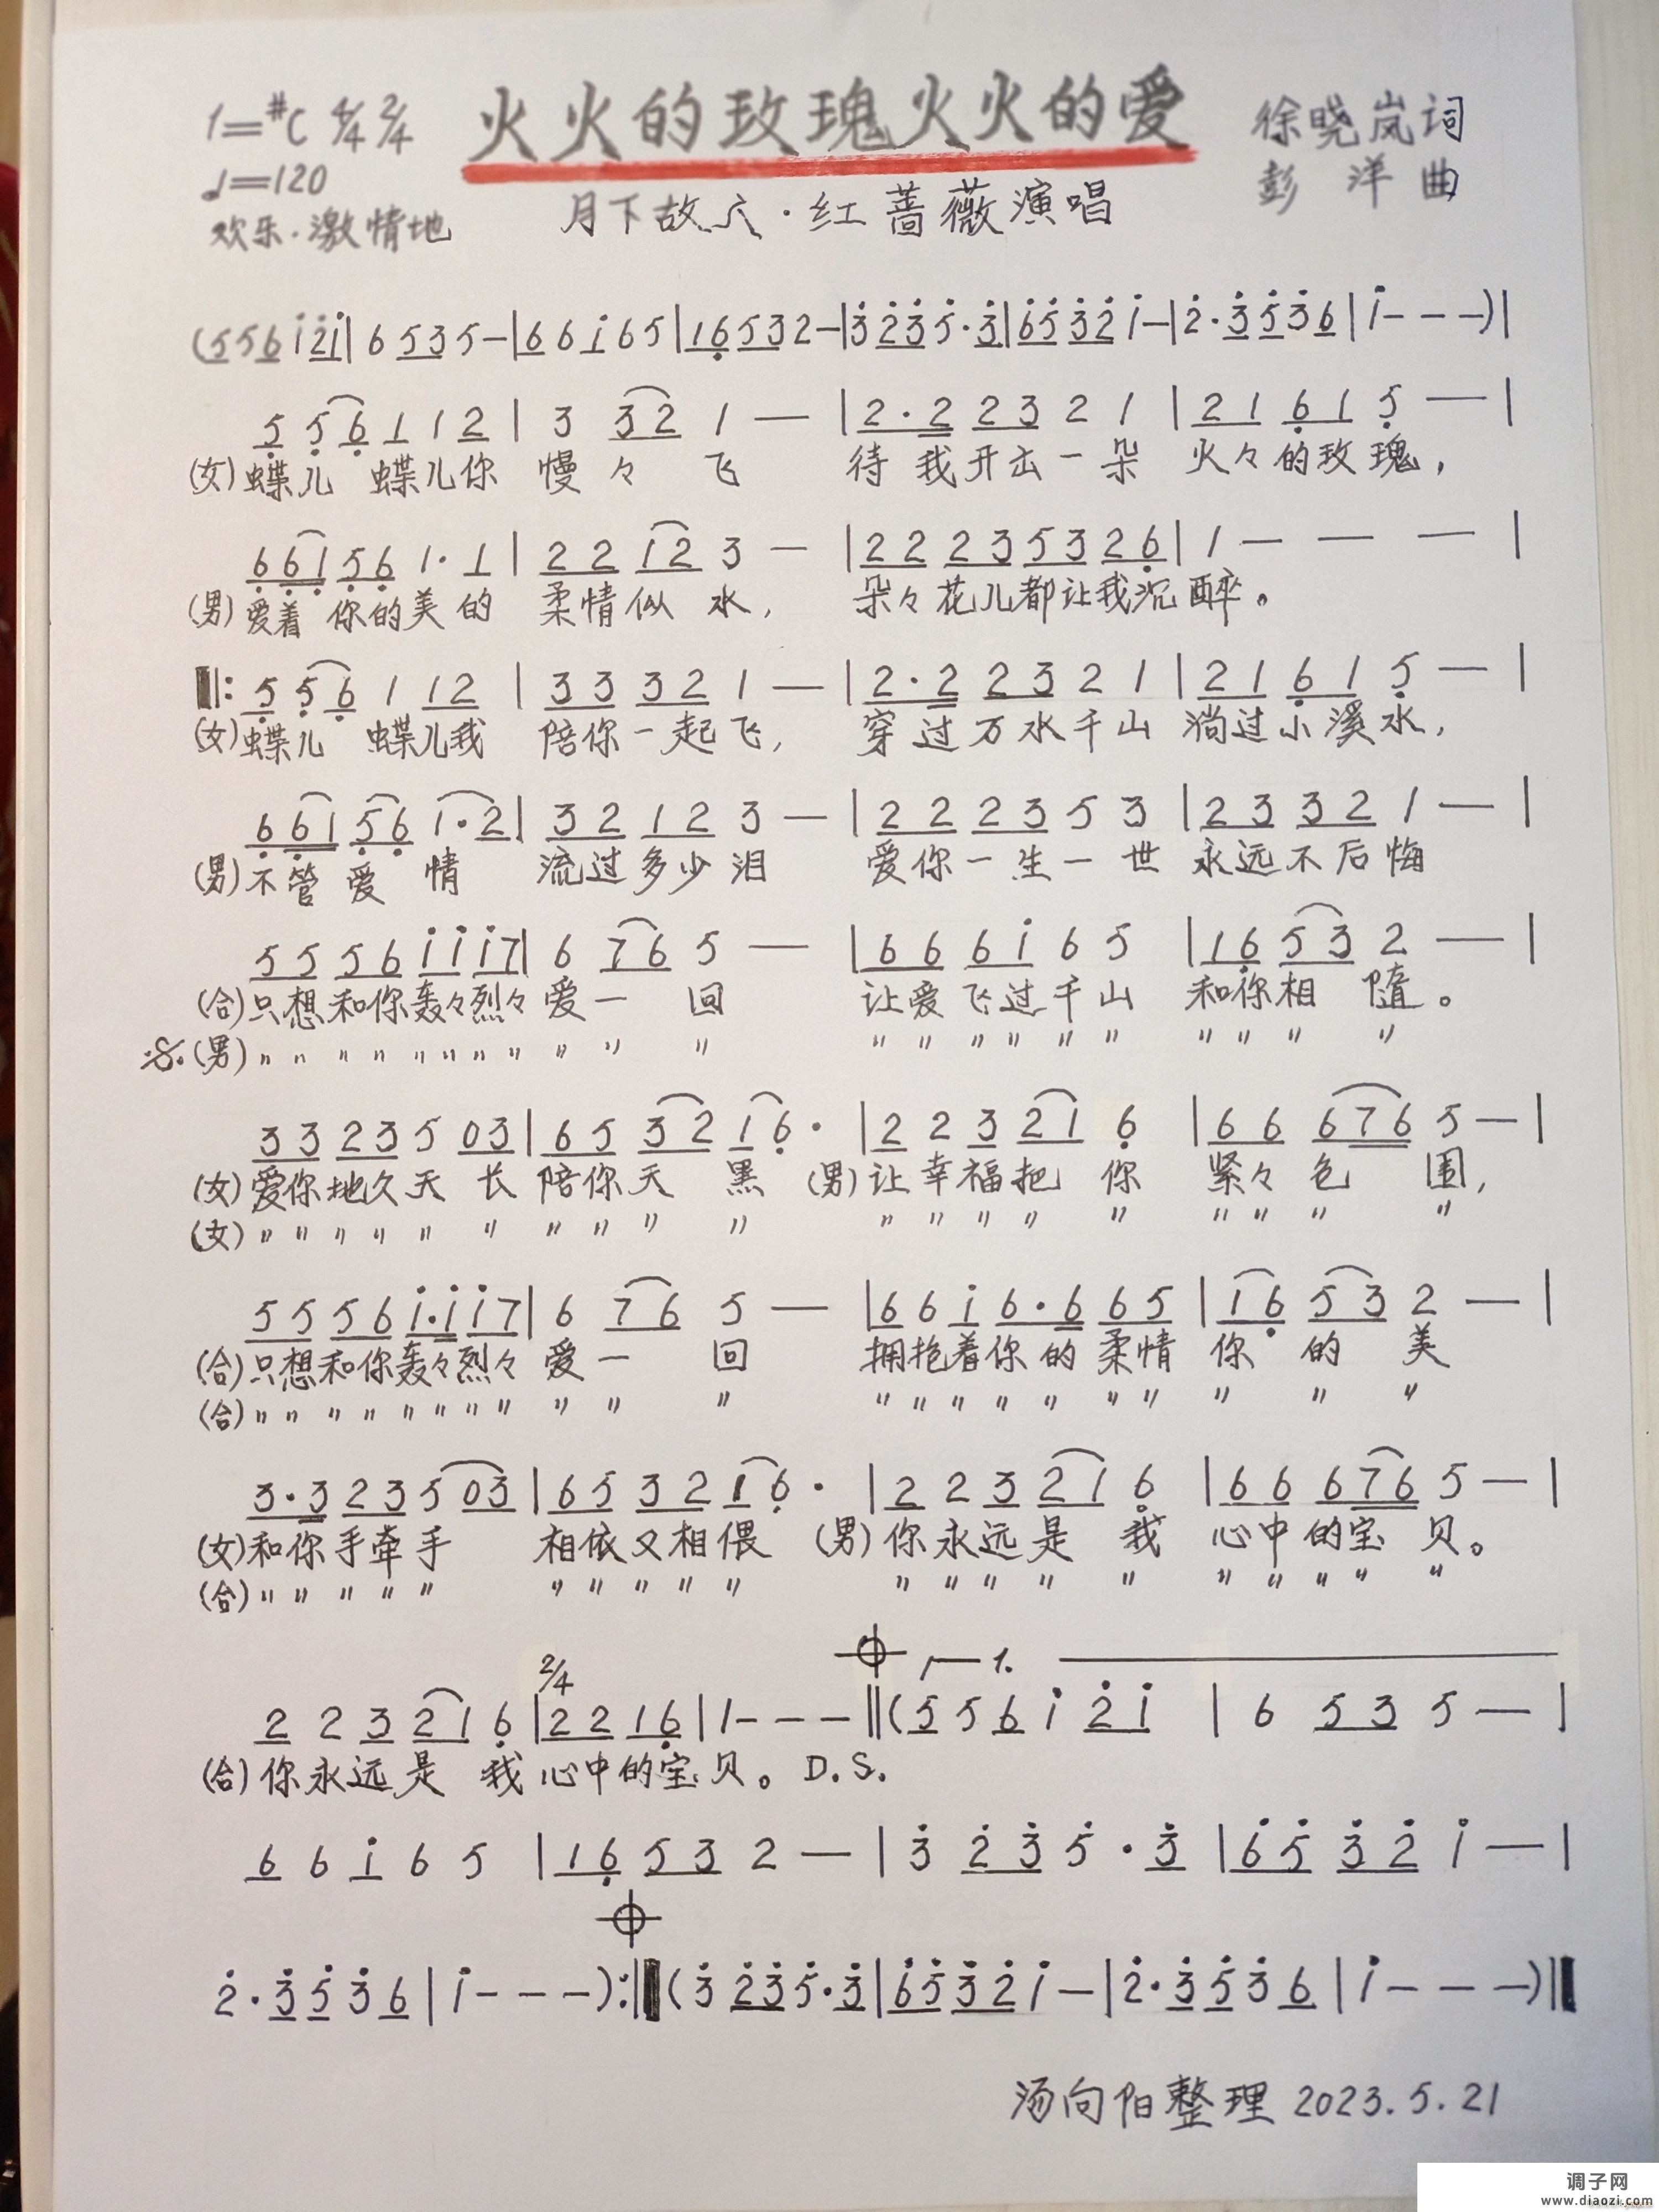 1=#C 4/4 2/4 火火的玫瑰火火的爱 徐晓岚词
♩=120 彭 洋 曲
欢乐·激情地 月下故人·红蔷薇演唱
(5 5 6 i 2̇ i | 6 5 3 5 — | 6 6 i 6 5 | 1 6̣ 5 3 2 — | 3̇ 2̇ 3̇ 5̇ · 3̇ | 6̇ 5̇ 3̇ 2̇ i — | 2̇ · 3̇ 5̇ 3̇ 6 | i - - - ) |
5̣ 5̣ 6̣ 1 1 2 | 3 3 2 1 — | 2 · 2 2 3 2 1 | 2 1 6̣ 1 5̣ — |
(女)蝶儿 蝶儿你 慢々 飞 待我开出一朵 火々的玫瑰，
6̣ 6̣ 1 5̣ 6̣ 1 · 1 | 2 2 1 2 3 — | 2 2 2 3 5 3 2 6̣ | 1 — — — |
(男)爱着 你的美的 柔情似 水， 朵々花儿都让我沉醉。
‖: 5̣ 5̣ 6̣ 1 1 2 | 3 3 3 2 1 — | 2 · 2 2 3 2 1 | 2 1 6̣ 1 5̣ — |
(女)蝶儿 蝶儿我 陪你一起飞， 穿过万水千山 淌过小溪水，
6̣ 6̣ 1 5̣ 6̣ 1 · 2 | 3 2 1 2 3 — | 2 2 2 3 5 3 | 2 3 3 2 1 — |
(男)不管爱 情 流过多少泪 爱你一生一世 永远不后悔
5 5 5 6 i i i 7 | 6 7 6 5 — | 6 6 6 i 6 5 | 1 6̣ 5 3 2 — |
(合)只想和你轰々烈々 爱一 回 让爱飞过千山 和你相 随。
𝄋 (男) " " " " " " " " " " " " " " " " " " " " "
3 3 2 3 5 0 3 | 6 5 3 2 1 6̣ · | 2 2 3 2 1 6̣ | 6 6 6 7 6 5 — |
(女)爱你地久天 长 陪你天 黑 (男)让幸福把 你 紧々包 围，
(女) " " " " " " " " " " " " " " " " " " "
5 5 5 6 i · i i 7 | 6 7 6 5 — | 6 6 i 6 · 6 6 5 | 1 6̣ 5 3 2 — |
(合)只想和你轰々烈々 爱一 回 拥抱着你的柔情 你 的 美
(合) " " " " " " " " " " " " " " " " " " " " "
3 · 3 2 3 5 0 3 | 6 5 3 2 1 6̣ · | 2 2 3 2 1 6̣ | 6 6 6 7 6 5 — |
(女)和你手牵手 相依又相偎 (男)你永远是 我 心中的宝 贝。
(合) " " " " " " " " " " " " " " " " " " " "
2/4 𝄌 1.
2 2 3 2 1 6̣ | 2 2 1 6̣ | 1 - - - ‖ (5 5 6 i 2̇ i | 6 5 3 5 — |
(合)你永远是 我 心中的宝贝。D.S.
6 6 i 6 5 | 1 6̣ 5 3 2 — | 3̇ 2̇ 3̇ 5̇ · 3̇ | 6̇ 5̇ 3̇ 2̇ i — |
𝄌
2̇ · 3̇ 5̇ 3̇ 6 | i - - - ) :‖ (3̇ 2̇ 3̇ 5̇ · 3̇ | 6̇ 5̇ 3̇ 2̇ i — | 2̇ · 3̇ 5̇ 3̇ 6 | i - - - ) ‖
汤向阳整理 2023.5.21
调子网
www.diaozi.com